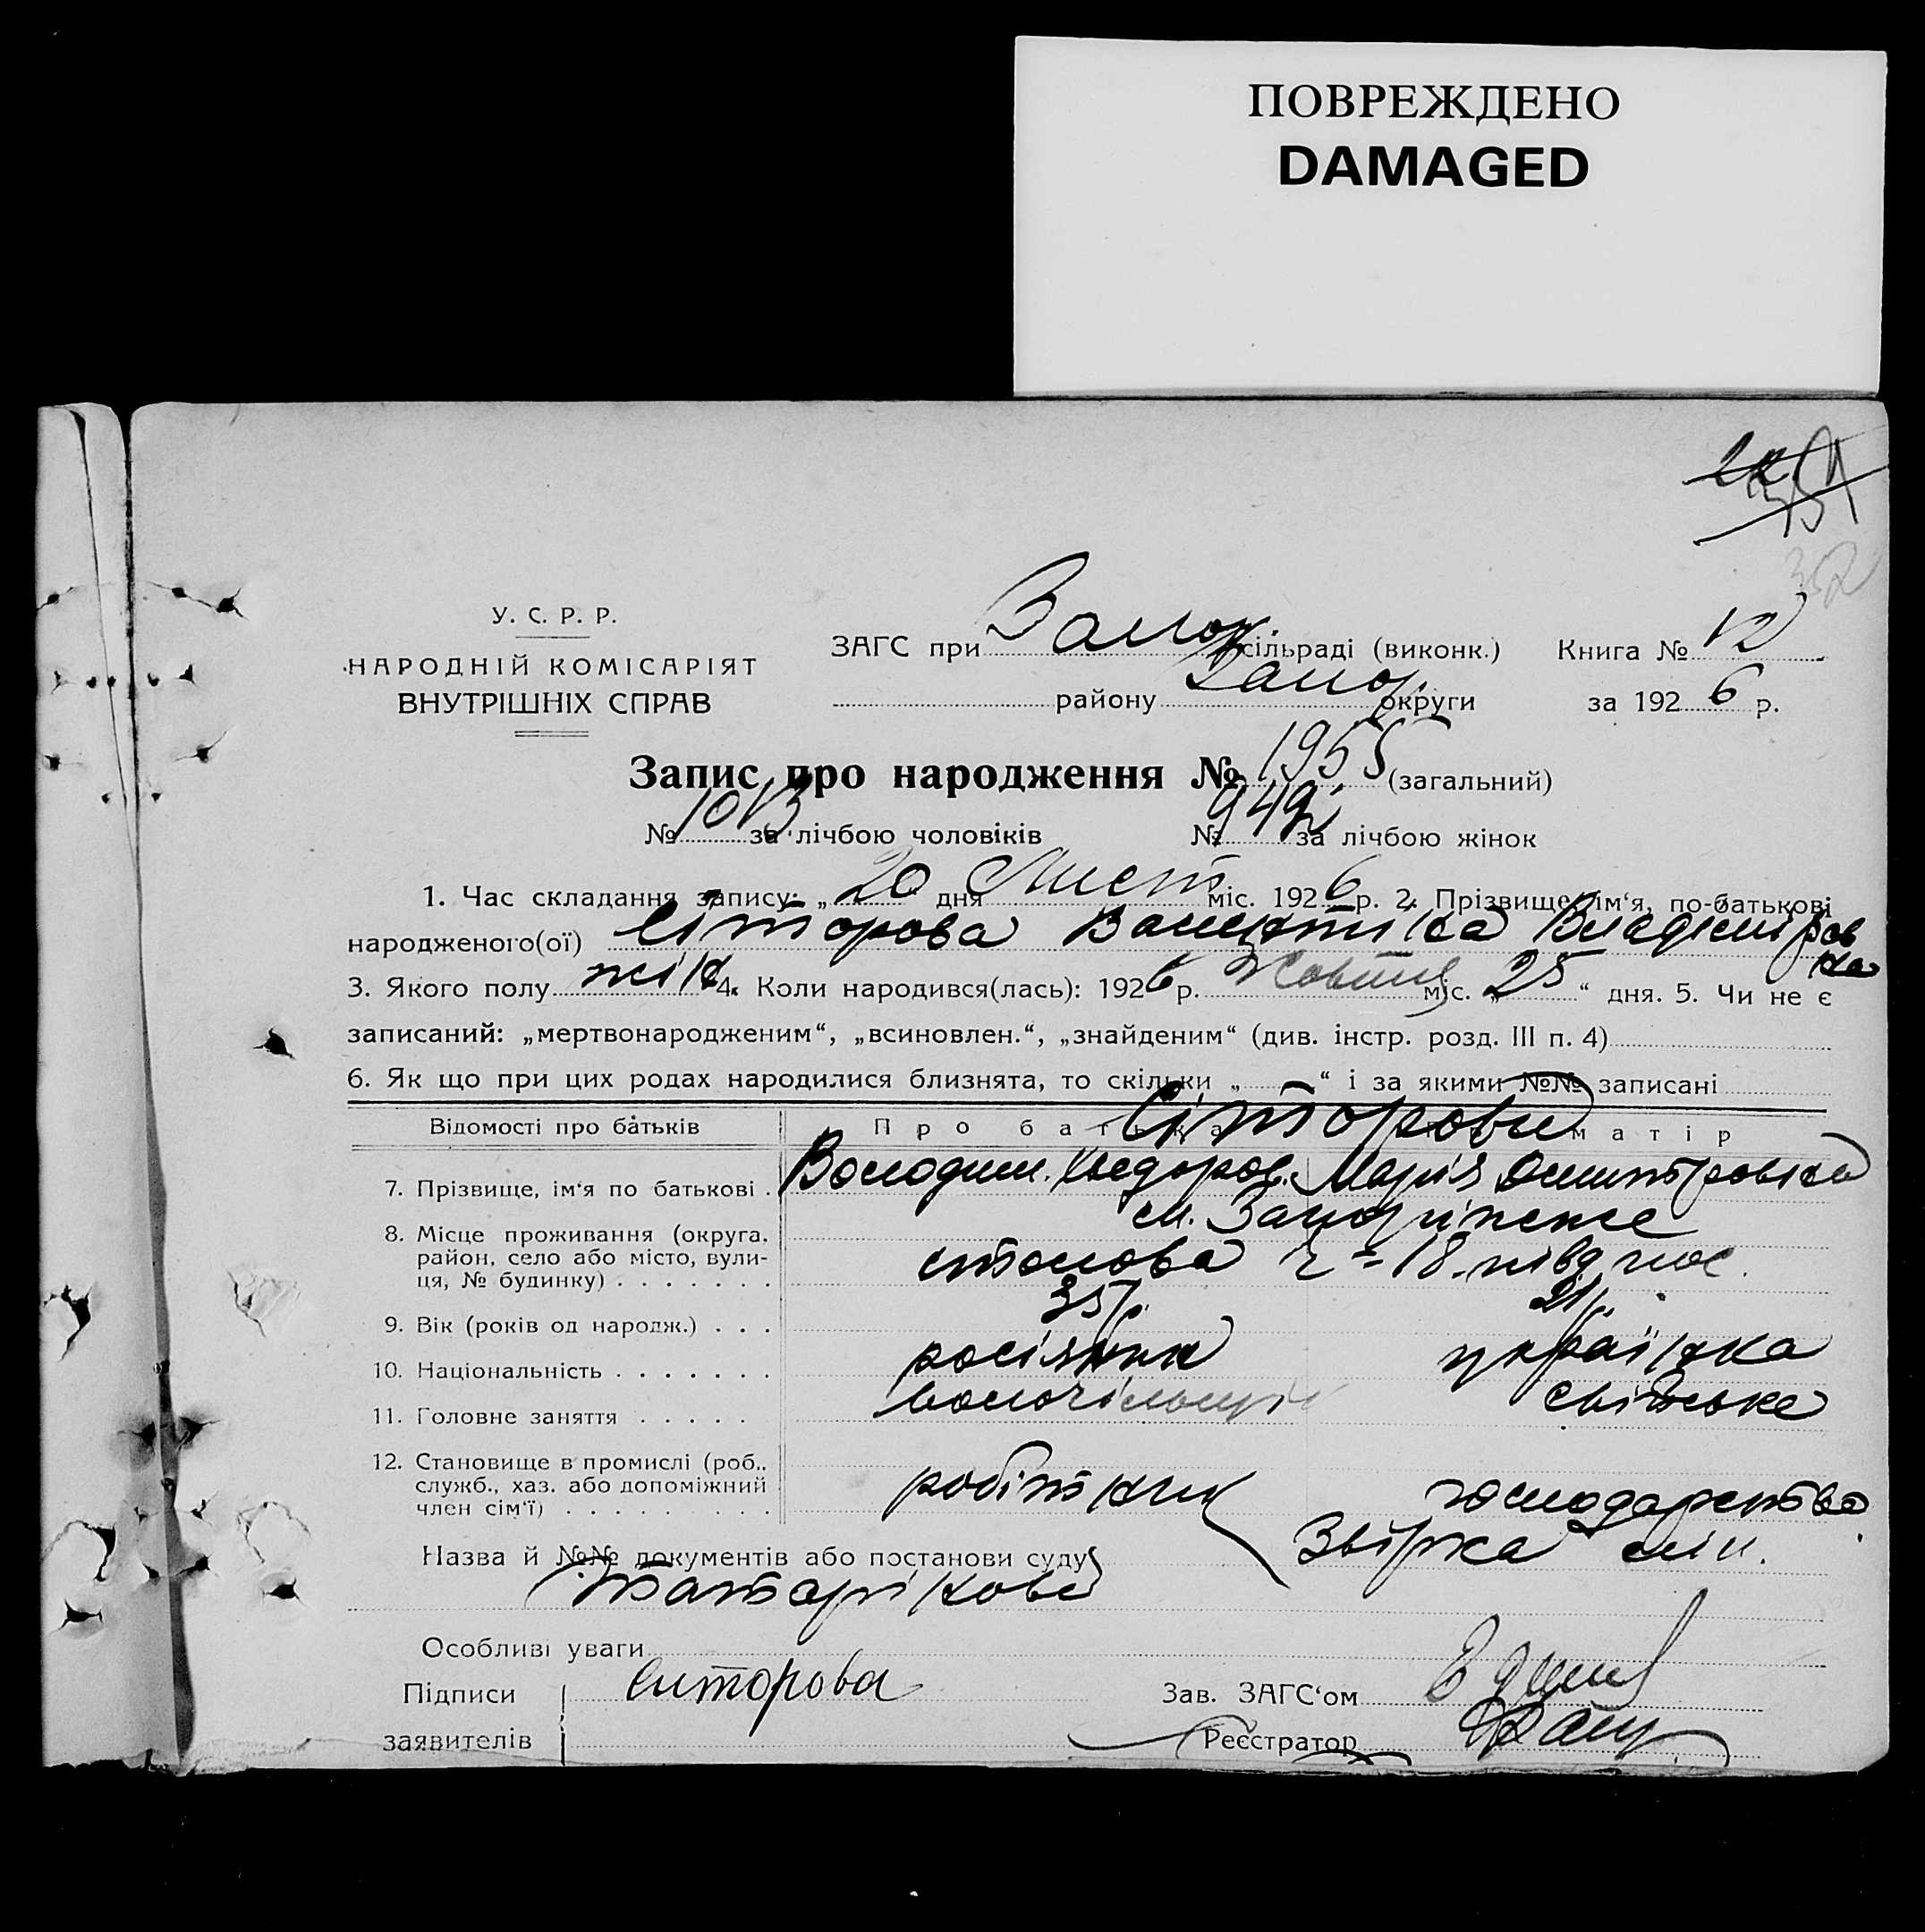 ПОВРЕЖДЕНО
DAMAGED
32
У. С. Р. Р.
НАРОДНІЙ КОМІСАРІЯТ
ВНУТРІШНІХ СПРАВ
ЗАГС при Запор. сільраді (виконк.) Книга № 12
району Запор. округи за 1926 р.
Запис про народження № 1955 (загальний)
№ 1013 за лічбою чоловіків № 942 за лічбою жінок
1. Час складання запису: „20 дня Лист міс. 1926 р. 2. Прізвище, ім‘я, по-батькові
народженого(ої) Сіторова Валентіна Владімиров
на
3. Якого полу жін. 4. Коли народився(лась): 1926 р. Жовтня міс. „25“ дня. 5. Чи не є
записаний: „мертвонародженим“, „всиновлен.“, „знайденим“ (див. інстр. розд. III п. 4)
6. Як що при цих родах народилися близнята, то скільки „ — “ і за якими №№ записані
Відомості про батьків Про батька Сіторови матір
7. Прізвище, ім‘я по батькові . Володим. Федоров. Марія Дмитровна
8. Місце проживання (округа, м. Запоріжже
район, село або місто, вули-
ця, № будинку) . . . . . . . 18 півд пос.
9. Вік (років од народж.) . . . 35 р. 21 р.
10. Національність . . . . . . . росіянин українка
11. Головне заняття . . . . . хатнє
12. Становище в промислі (роб.,
служб., хаз. або допоміжний робітник господарство
член сім‘ї) . . . . . . . . .
Назва й №№ документів або постанови суду Звірка
Особливі уваги
Підписи Ситорова Зав. ЗАГС‘ом
заявителів Реєстратор